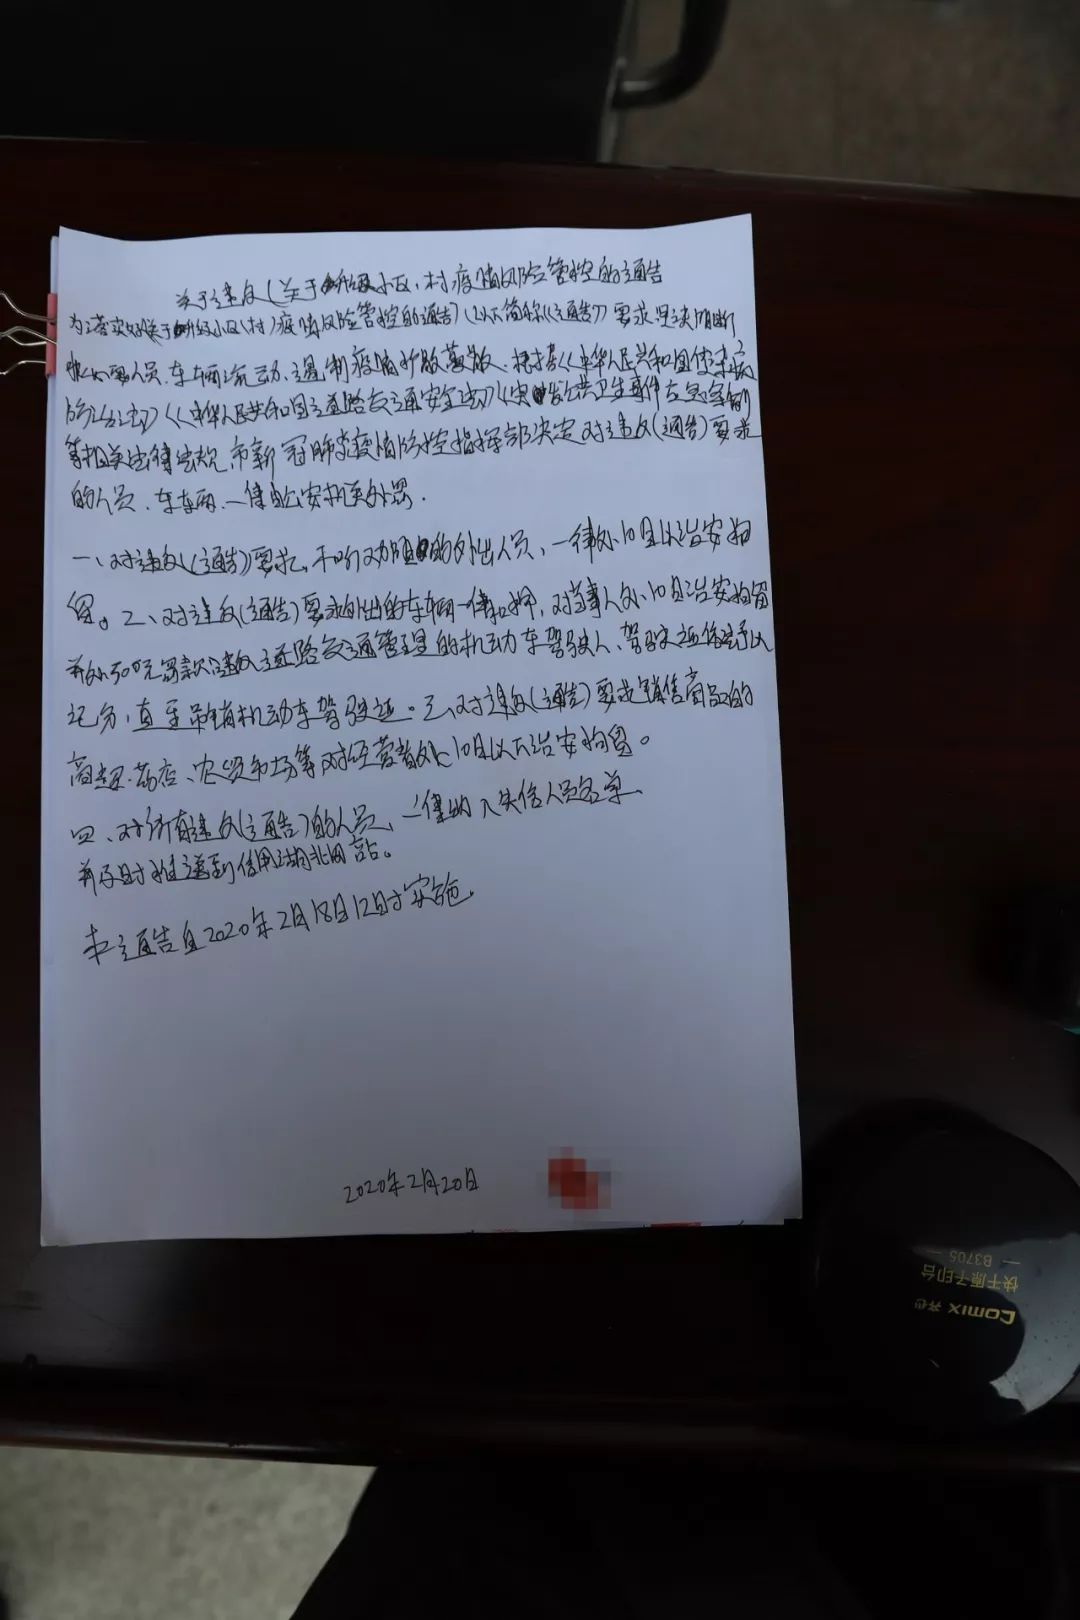 关于违反《关于升级小区、村疫情风险管控的通告
为落实好关于升级小区(村)疫情风险管控的通告》(以下简称《通告》)要求坚决阻断
人员、车辆流动、遏制疫情扩散蔓散、根据《中华人民共和国传染病
防治法》《中华人民共和国道路交通安全法》《突发公共卫生事件应急条例
等相关法律法规,市新冠肺炎疫情防控指挥部决定对违反(通告)要求
的人员、车车辆、一律由公安机关处罚.
一、对违反(通告)要求,不听劝阻的外出人员、一律处10日以下治安拘
留。二、对违反(通告)要求外出的车辆一律扣押,对当事人处10日治安拘留
并处500元罚款,违反道路交通管理的机动车驾驶人、驾驶证依法予以
记分,直至吊销机动车驾驶证。三、对违反(通告)要求销售商品的
商超、药店、农贸市场等对经营者处10日以下治安拘留。
四、对所有违反(通告)的人员、一律纳入失信人员名单、
并及时推送到信用湖北网站。
本通告自2020年2月18日12时实施.
2020年2月20日
B3705
快干原子印台
Comix 齐心